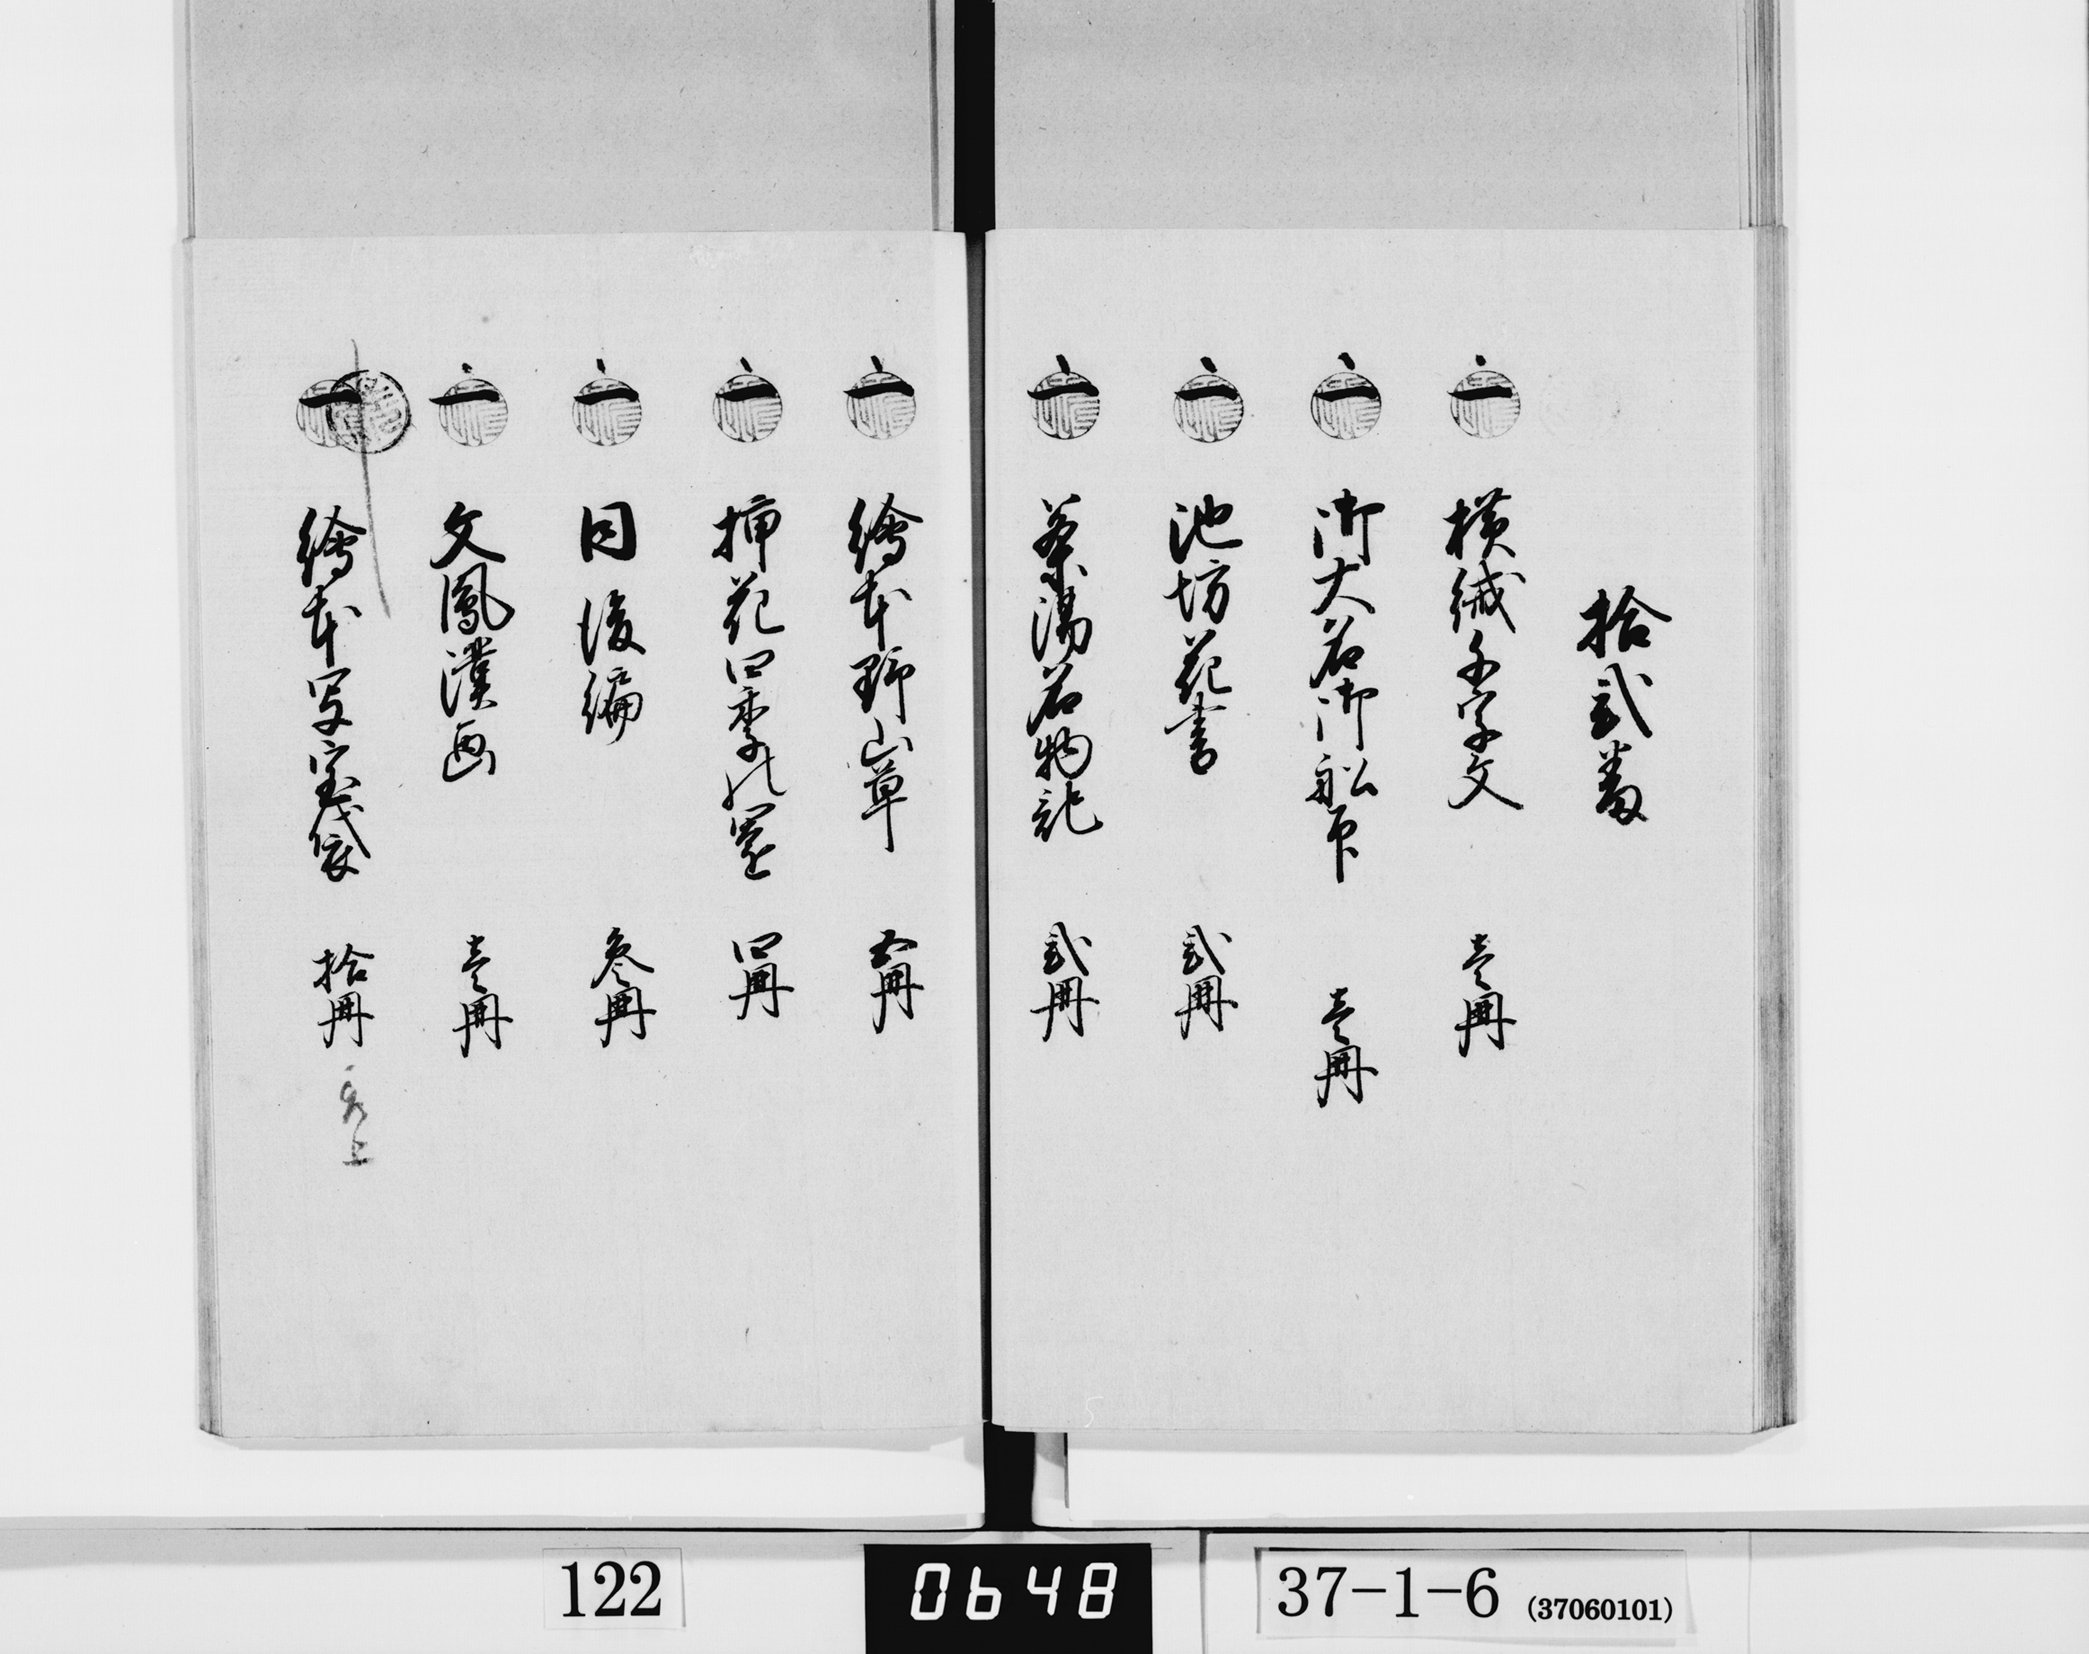 拾弐番
一 横絨千字文 壱冊
一 御大名御船印 壱冊
一 池坊花書 弐冊
一 茶湯名物記 弐冊
一 繪本野山草 五冊
一 挿花四季の 四冊
一 同後編 参冊
一 文鳳漢画 壱冊
一 繪本写宝袋 拾冊
122
0648
37-1-6 (37060101)